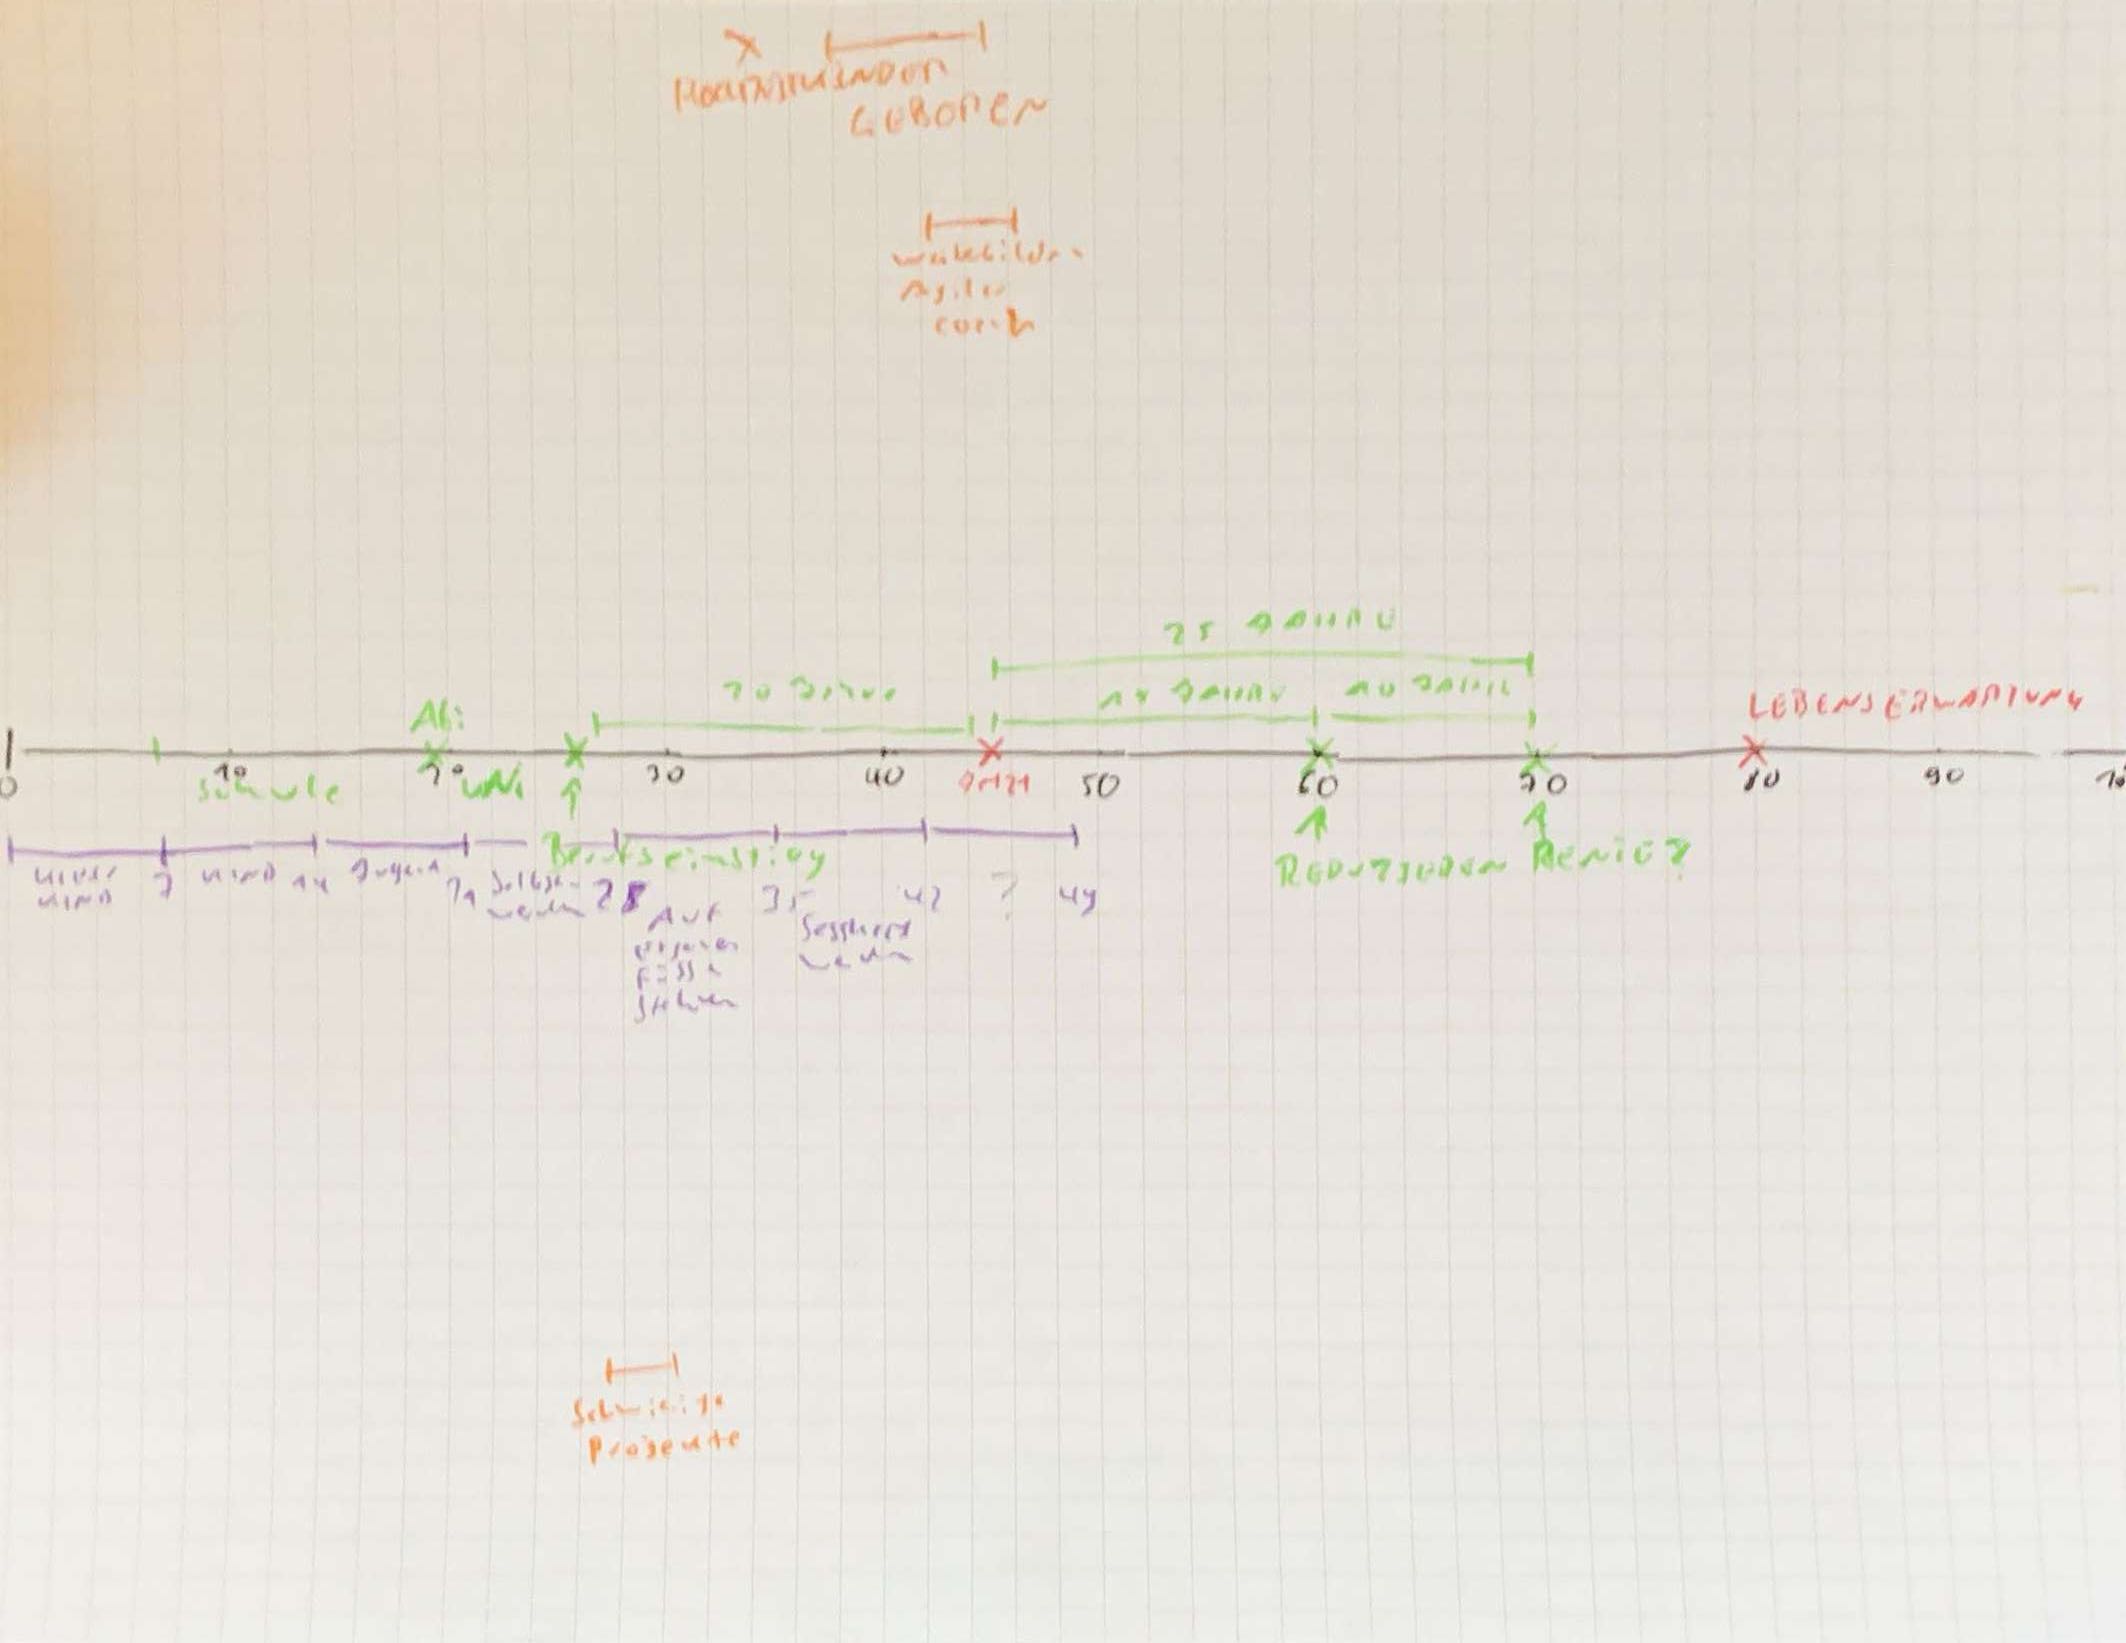 KINDER
GEBOREN
Agiler
coach
25 JAHRE
20 Jahre
10 JAHRE
LEBENSERWARTUNG
Abi
0
10
20
30
40
50
60
70
80
90
Schule
Uni
Berufseinstieg
REDUZIEREN
RENTE?
KIND
7
KIND
14
Jugend
21
28
35
42
?
49
werden
AUF
eigenen
Füssen
stehen
Sesshaft
werden
Schwierige
Projekte